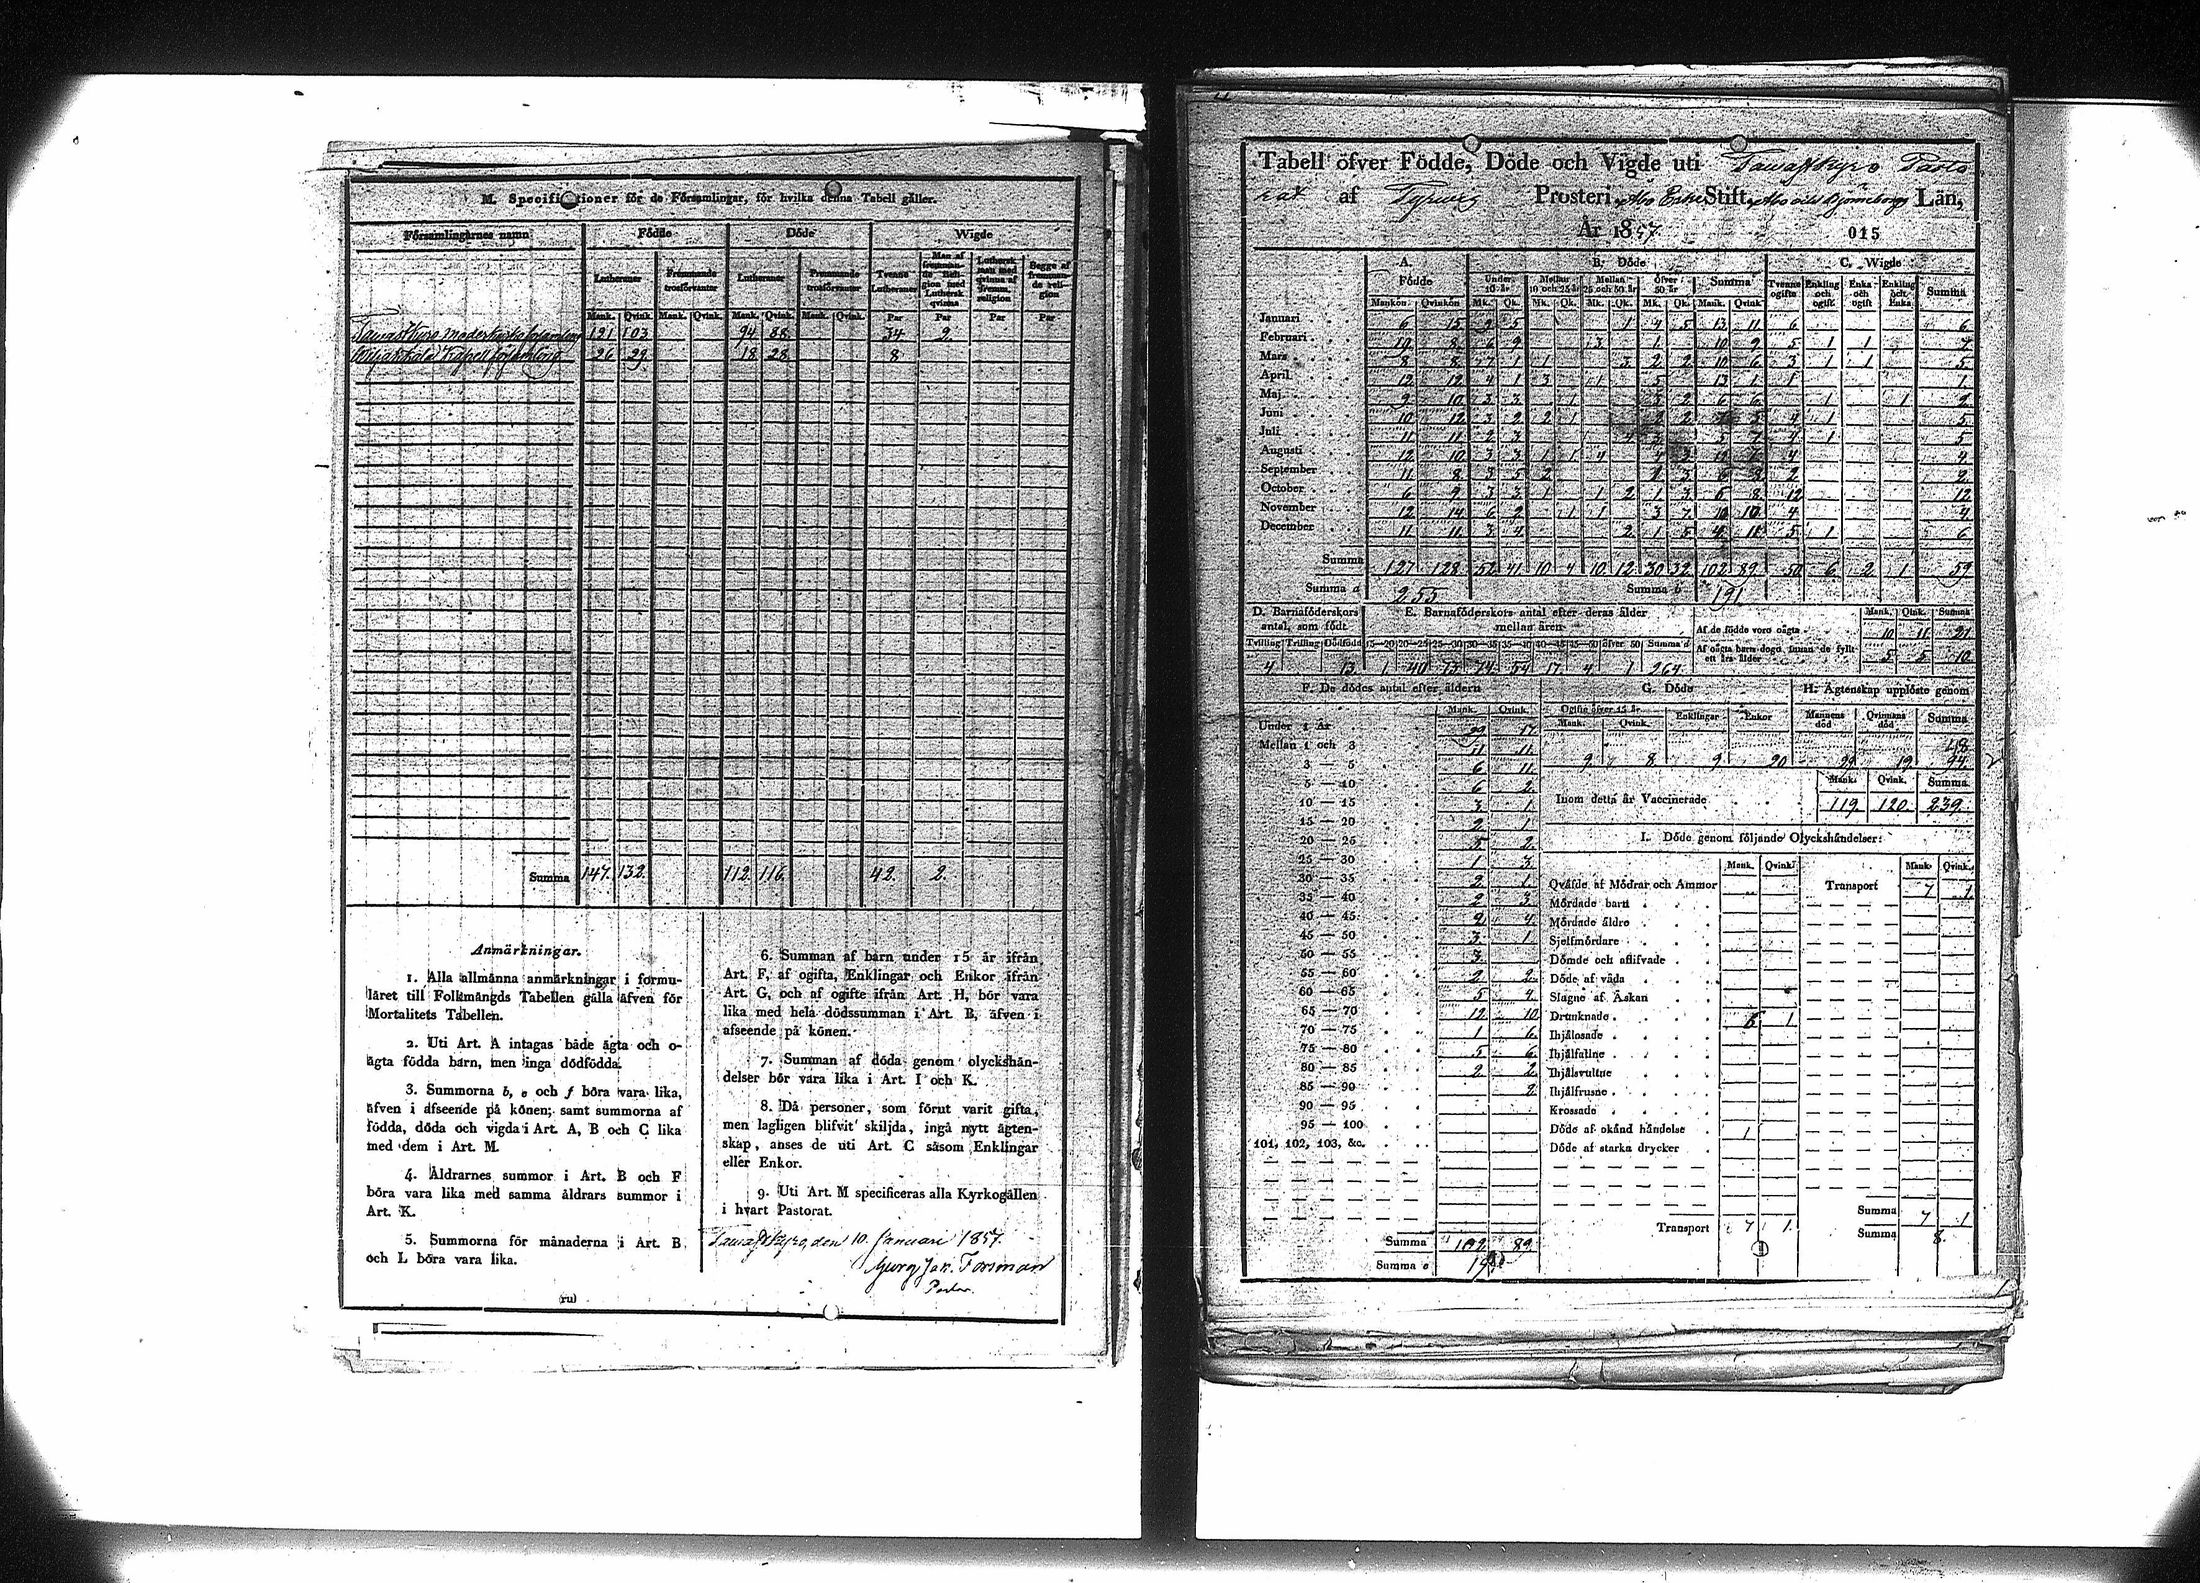 M. Specificationer för de Församlingar, för hvilka denna Tabell gäller.
Församlingarnes namn
Födde
Döde
Wigde
Lutheraner
Främmande trosförvanter
Lutheraner
Främmande trosförvanter
Tvenne Lutheraner
Man af främmande Religion med Luthersk qvinna
Luthersk man med qvinna af främm. religion
Begge af främmande religion
Mank. Qvink. Mank. Qvink. Mank. Qvink. Mank. Qvink. Par Par Par Par
Tawastkyro moderkyrko församling 121 103 94 88 34 2.
Kapell församling 26 29 18 28 8
Summa 147. 132. 112. 116. 42. 2.
Anmärkningar.
1. Alla allmänna anmärkningar i formu-
läret till Folkmängds Tabellen gälla äfven för
Mortalitets Tabellen.
2. Uti Art. A intagas både ägta och o-
ägta födda barn, men inga dödfödda.
3. Summorna b, e och f böra vara lika,
äfven i afseende på könen; samt summorna af
födda, döda och vigda i Art. A, B och C lika
med dem i Art. M.
4. Åldrarnes summor i Art. B och F
böra vara lika med samma åldrars summor i
Art. K.
5. Summorna för månaderna i Art. B
och L böra vara lika.
6. Summan af barn under 15 år ifrån
Art. F, af ogifta, Enklingar och Enkor ifrån
Art. G, och af ogifte ifrån Art. H, bör vara
lika med hela dödssumman i Art. B, äfven i
afseende på könen.
7. Summan af döda genom olyckshän-
delser bör vara lika i Art. I och K.
8. Då personer, som förut varit gifta,
men lagligen blifvit skiljda, ingå nytt ägten-
skap, anses de uti Art. C såsom Enklingar
eller Enkor.
9. Uti Art. M specificeras alla Kyrkogällen
i hvart Pastorat.
Tawastkyro, den 10. Januari 1857.
Georg Jac. Forsman
Pastor.
(ru)
Tabell öfver Födde, Döde och Vigde uti Tawastkyro Pasto
rat af Tyrwis Prosteri, Åbo Erke Stift, Åbo och Björneborgs Län,
År 1857.
015
A. Födde
B. Döde
C. Wigde
Under 10 år
Mellan 10 och 25 år
Mellan 25 och 50 år
Öfver 50 år
Summa
Tvenne ogifte
Enkling och ogift
Enka och ogift
Enkling och Enka
Summa
Mankön Qvinkön Mk. Qk. Mk. Qk. Mk. Qk. Mk. Qk. Mank. Qvink.
Januari 6 15 2 5 1 4 5 13 11 6 6.
Februari 10 8 6 9 3 1 10 9 5 1 1 7
Mars 8 8 7 1 1 3 2 2 10 6 3 1 1 5.
April 12 12 4 1 3 1 5 13 1 1 1.
Maj 9 10 3 3 1 3 2 6 6 1 1 2
Juni 10 12 3 2 2 1 2 2 5 4 1 5
Juli 11 11 2 3 4 3 5 7 4 1 5
Augusti 12 10 3 3 1 1 4 4 3 12 7 4 4.
September 11 8 3 5 2 1 3 6 8 2 2.
October 6 9 3 3 1 1 2 1 3 6 8 12 12
November 12 14 6 2 1 1 3 7 10 10 4 4.
December 11 11 3 4 2 1 5 4 11 5 1 6
Summa 127 128 52 41 10 4 10 12 30 32 102 89 50 6 2 1 59
Summa a 255
Summa b 191.
D. Barnaföderskors antal, som födt
Tvilling Trilling Dödfödd
4. 13.
E. Barnaföderskors antal efter deras ålder mellan åren
15—20 20—25 25—30 30—35 35—40 40—45 45—50 öfver 50 Summa d
1 40 73 74 54 17 4 1 264.
Mank. Qink. Summa
Af de födde voro oägta 10 11 21
Af oägta barn dogo innan de fyllt ett års ålder 5 5 10
F. De dödes antal efter åldern
Mank. Qvink.
Under 1 År 29 17
Mellan 1 och 3 11 11
3 — 5 6 11
5 — 10 6 2
10 — 15 3 1
15 — 20 2 1
20 — 25 5 2
25 — 30 1 3
30 — 35 2 1
35 — 40 2 3
40 — 45 2 4
45 — 50 3 1
50 — 55 3
55 — 60 2 2
60 — 65 5 4
65 — 70 12 10
70 — 75 1 6
75 — 80 5 6
80 — 85 2 2
85 — 90 2
90 — 95
95 — 100
101, 102, 103, &c.
Summa 102 89
Summa e
G. Döde
Ogifte öfver 15 år
Mank. Qvink. Enklingar Enkor
9. 8 9 20
H. Ägtenskap upplöste genom
Mannens död Qvinnans död Summa
29 19 48
Mank. Qvink. Summa
Inom detta år Vaccinerade 119 120 239
I. Döde genom följande Olyckshändelser:
Mank. Qvink. Mank. Qvink.
Qväfde af Mödrar och Ammor
Mördade barn
Mördade äldre
Sjelfmördare
Dömde och aflifvade
Döde af våda
Slagne af Åskan
Drunknade 6 1
Ihjälosade
Ihjälfallne
Ihjälsvultne
Ihjälfrusne
Krossade
Döde af okänd händelse 1
Döde af starka drycker
Transport 7 1
Transport 7 1.
Summa 7 1
Summa 8.